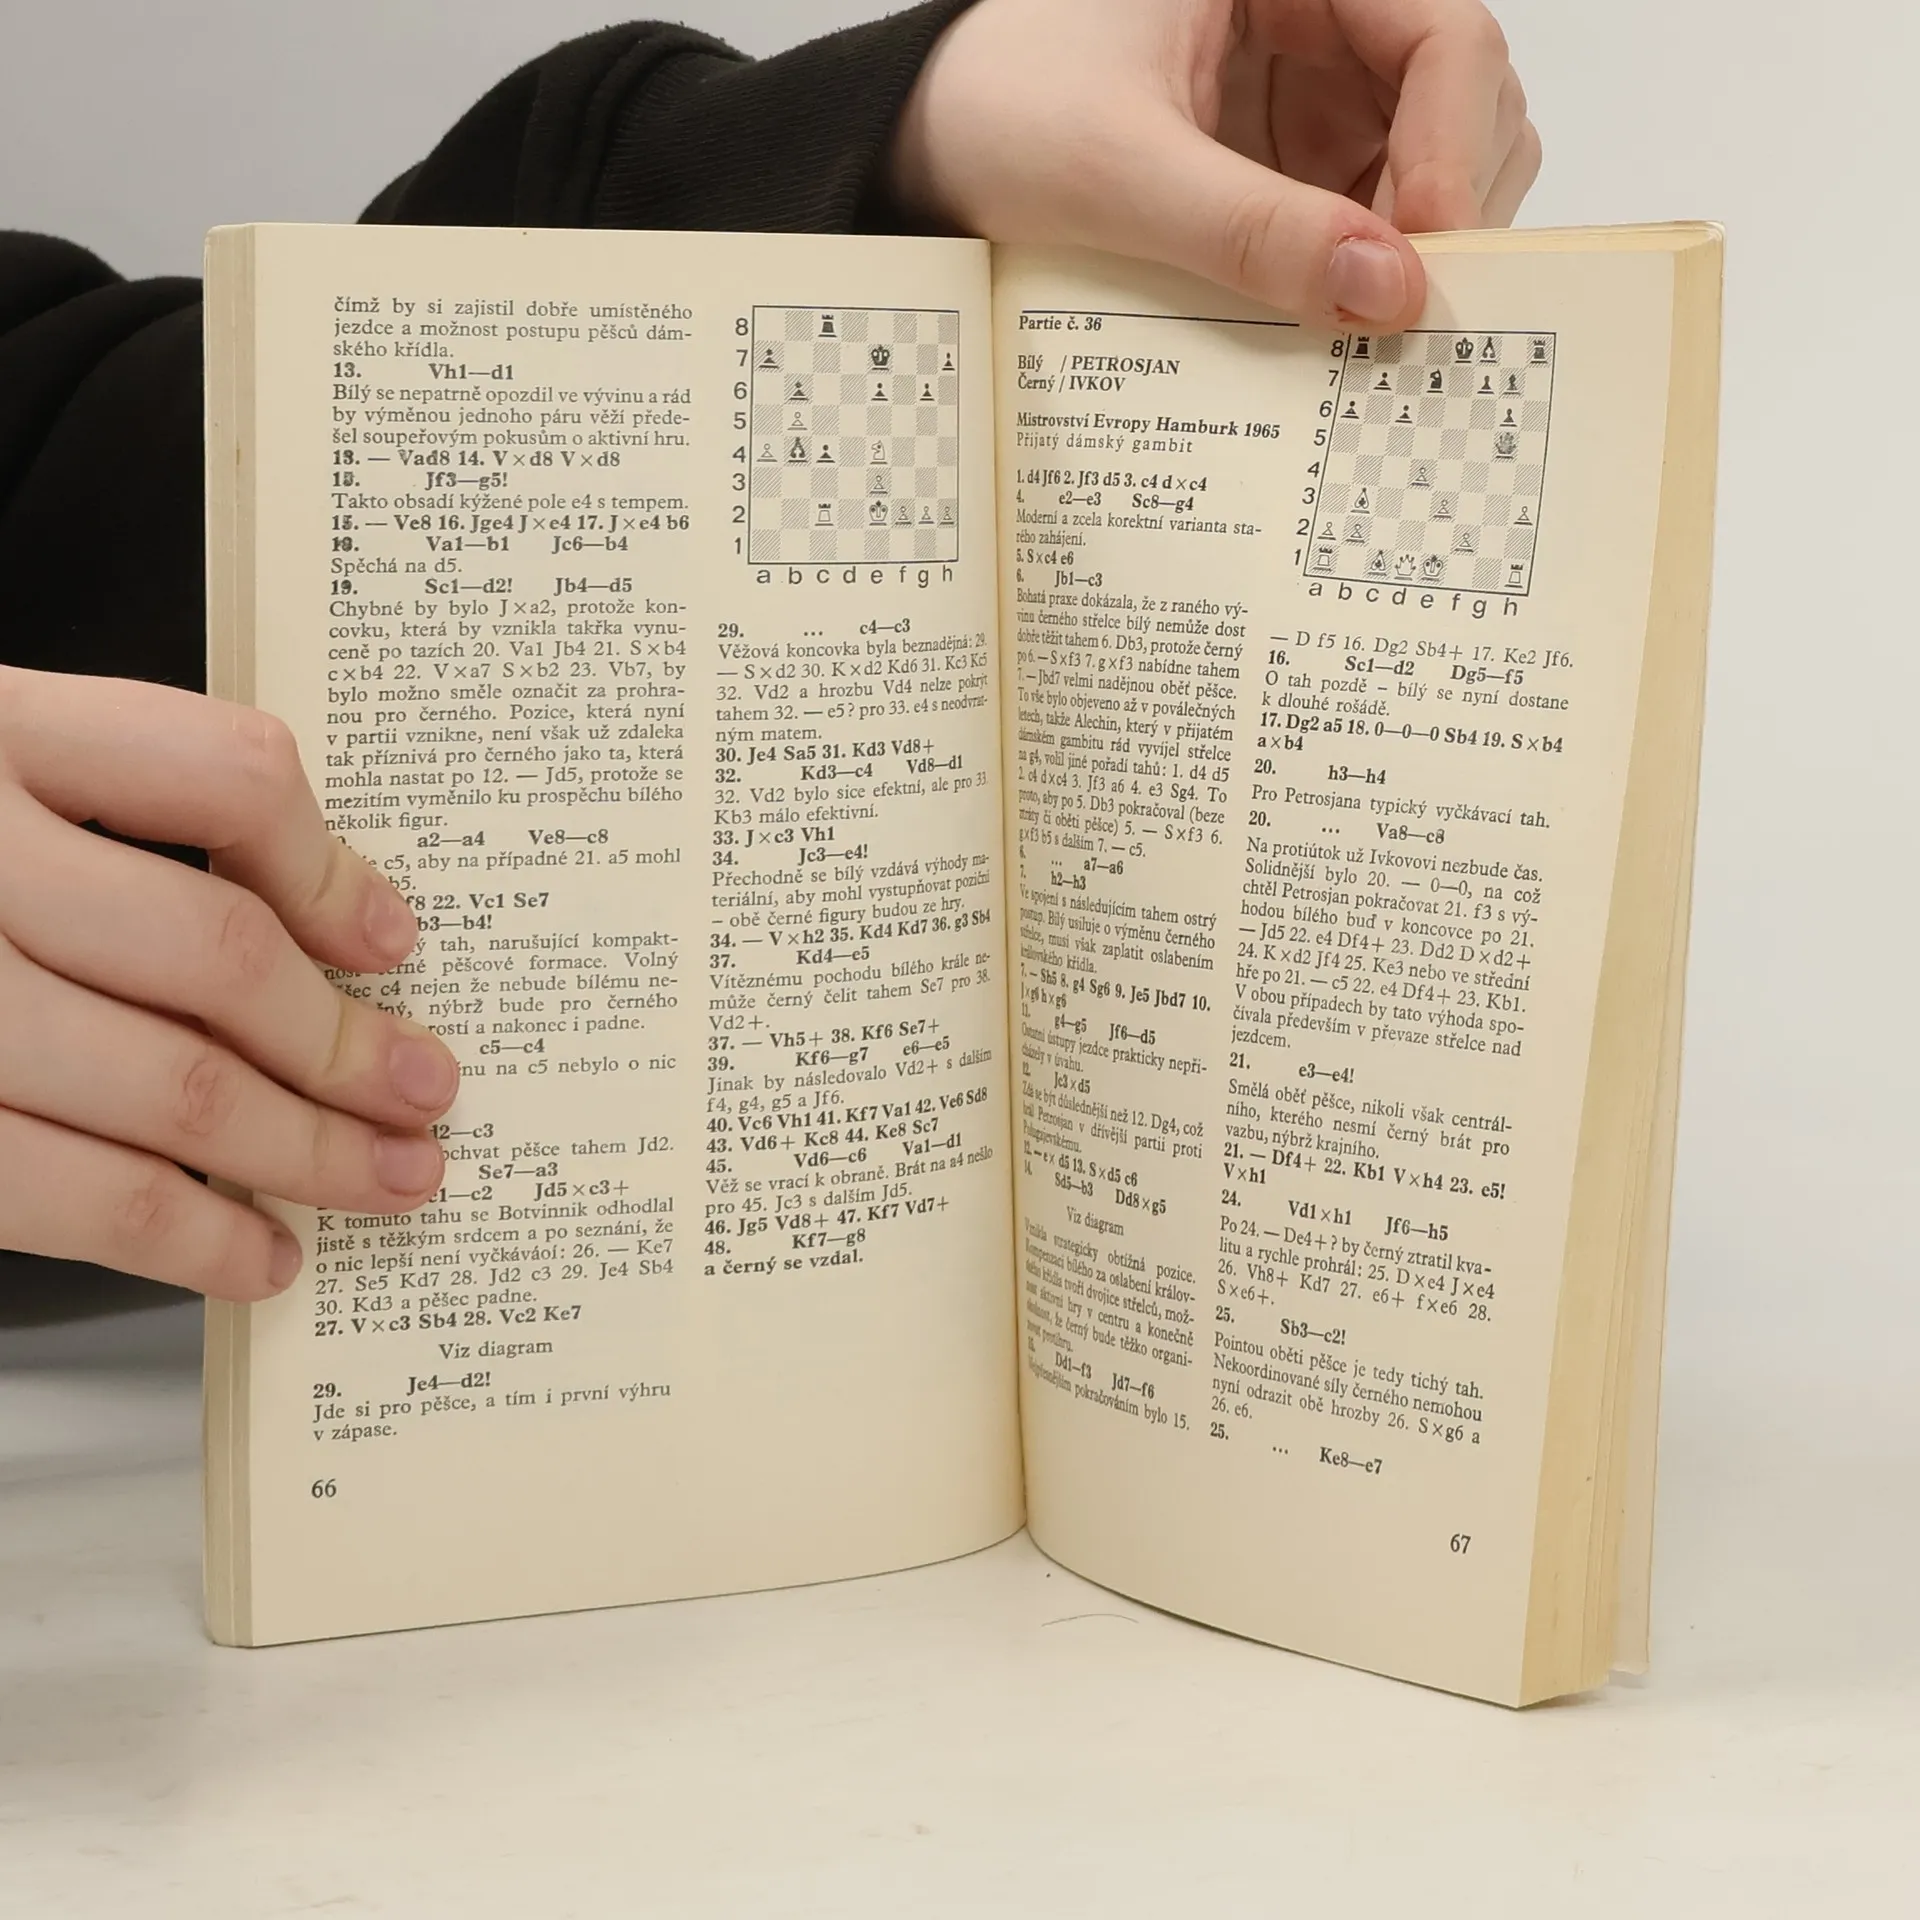 čímž by si zajistil dobře umístěného
jezdce a možnost postupu pěšců dám-
ského křídla.
13. Vh1—d1
Bílý se nepatrně opozdil ve vývinu a rád
by výměnou jednoho páru věží přede-
šel soupeřovým pokusům o aktivní hru.
13. — Vad8 14. V×d8 V×d8
15. Jf3—g5!
Takto obsadí kýžené pole e4 s tempem.
15. — Ve8 16. Jge4 J×e4 17. J×e4 b6
18. Va1—b1 Jc6—b4
Spěchá na d5.
19. Sc1—d2! Jb4—d5
Chybné by bylo J×a2, protože kon-
covku, která by vznikla takřka vynu-
ceně po tazích 20. Va1 Jb4 21. S×b4
c×b4 22. V×a7 S×b2 23. Vb7, by
bylo možno směle označit za prohra-
nou pro černého. Pozice, která nyní
v partii vznikne, není však už zdaleka
tak příznivá pro černého jako ta, která
mohla nastat po 12. — Jd5, protože se
mezitím vyměnilo ku prospěchu bílého
několik figur.
a2—a4 Ve8—c8
c5, aby na případné 21. a5 mohl
b5.
f8 22. Vc1 Se7
b3—b4!
tah, narušující kompakt-
pěšcové formace. Volný
c4 nejen že nebude bílému ne-
nýbrž bude pro černého
rostí a nakonec i padne.
c5—c4
na c5 nebylo o nic
d2—c3
pěšce tahem Jd2.
Se7—a3
c1—c2 Jd5×c3+
K tomuto tahu se Botvinnik odhodlal
jistě s těžkým srdcem a po seznání, že
o nic lepší není vyčkáváoí: 26. — Ke7
27. Se5 Kd7 28. Jd2 c3 29. Je4 Sb4
30. Kd3 a pěšec padne.
27. V×c3 Sb4 28. Vc2 Ke7
Viz diagram
29. Je4—d2!
Jde si pro pěšce, a tím i první výhru
v zápase.
66
8
7
6
5
4
3
2
1
a b c d e f g h
29. ... c4—c3
Věžová koncovka byla beznadějná: 29.
— S×d2 30. K×d2 Kd6 31. Kc3 Kc5
32. Vd2 a hrozbu Vd4 nelze pokrýt
tahem 32. — e5? pro 33. e4 s neodvrat-
ným matem.
30. Je4 Sa5 31. Kd3 Vd8+
32. Kd3—c4 Vd8—d1
32. Vd2 bylo sice efektní, ale pro 33.
Kb3 málo efektivní.
33. J×c3 Vh1
34. Jc3—e4!
Přechodně se bílý vzdává výhody ma-
teriální, aby mohl vystupňovat poziční
– obě černé figury budou ze hry.
34. — V×h2 35. Kd4 Kd7 36. g3 Sb4
37. Kd4—e5
Vítěznému pochodu bílého krále ne-
může černý čelit tahem Se7 pro 38.
Vd2+.
37. — Vh5+ 38. Kf6 Se7+
39. Kf6—g7 e6—e5
Jinak by následovalo Vd2+ s dalším
f4, g4, g5 a Jf6.
40. Vc6 Vh1 41. Kf7 Va1 42. Ve6 Sd8
43. Vd6+ Kc8 44. Ke8 Sc7
45. Vd6—c6 Va1—d1
Věž se vrací k obraně. Brát na a4 nešlo
pro 45. Jc3 s dalším Jd5.
46. Jg5 Vd8+ 47. Kf7 Vd7+
48. Kf7—g8
a černý se vzdal.
Partie č. 36
Bílý / PETROSJAN
Černý / IVKOV
Mistrovství Evropy Hamburk 1965
Přijatý dámský gambit
1. d4 Jf6 2. Jf3 d5 3. c4 d×c4
4. e2—e3 Sc8—g4
Moderní a zcela korektní varianta sta-
rého zahájení.
5. S×c4 e6
6. Jb1—c3
Bohatá praxe dokázala, že z raného vý-
vinu černého střelce bílý nemůže dost
dobře těžit tahem 6. Db3, protože černý
po 6. — S×f3 7. g×f3 nabídne tahem
7. — Jbd7 velmi nadějnou oběť pěšce.
To vše bylo objeveno až v poválečných
letech, takže Alechin, který v přijatém
dámském gambitu rád vyvíjel střelce
na g4, volil jiné pořadí tahů: 1. d4 d5
2. c4 d×c4 3. Jf3 a6 4. e3 Sg4. To
proto, aby po 5. Db3 pokračoval (beze
ztráty či oběti pěšce) 5. — S×f3 6.
g×f3 b5 s dalším 7. — c5.
6. ... a7—a6
7. h2—h3
Ve spojení s následujícím tahem ostrý
postup. Bílý usiluje o výměnu černého
střelce, musí však zaplatit oslabením
královského křídla.
7. — Sh5 8. g4 Sg6 9. Je5 Jbd7 10.
J×g6 h×g6
11. g4—g5 Jf6—d5
Ostatní ústupy jezdce prakticky nepři-
cházely v úvahu.
12. Jc3×d5
Zdá se být důslednější než 12. Dg4, což
hrál Petrosjan v dřívější partii proti
Polugajevskému.
12. — e×d5 13. S×d5 c6
14. Sd5—b3 Dd8×g5
Viz diagram
Vznikla strategicky obtížná pozice.
Kompenzaci bílého za oslabení králov-
ského křídla tvoří dvojice střelců, mož-
nost aktivní hry v centru a konečně
okolnost, že černý bude těžko organi-
zovat protihru.
15. Dd1—f3 Jd7—f6
Nejpřesnějším pokračováním bylo 15.
8
7
6
5
4
3
2
1
a b c d e f g h
— D f5 16. Dg2 Sb4+ 17. Ke2 Jf6.
16. Sc1—d2 Dg5—f5
O tah pozdě – bílý se nyní dostane
k dlouhé rošádě.
17. Dg2 a5 18. 0—0—0 Sb4 19. S×b4
a×b4
20. h3—h4
Pro Petrosjana typický vyčkávací tah.
20. ... Va8—c8
Na protiútok už Ivkovovi nezbude čas.
Solidnější bylo 20. — 0—0, na což
chtěl Petrosjan pokračovat 21. f3 s vý-
hodou bílého buď v koncovce po 21.
— Jd5 22. e4 Df4+ 23. Dd2 D×d2+
24. K×d2 Jf4 25. Ke3 nebo ve střední
hře po 21. — c5 22. e4 Df4+ 23. Kb1.
V obou případech by tato výhoda spo-
čívala především v převaze střelce nad
jezdcem.
21. e3—e4!
Smělá oběť pěšce, nikoli však centrál-
ního, kterého nesmí černý brát pro
vazbu, nýbrž krajního.
21. — Df4+ 22. Kb1 V×h4 23. e5!
V×h1
24. Vd1×h1 Jf6—h5
Po 24. — De4+? by černý ztratil kva-
litu a rychle prohrál: 25. D×e4 J×e4
26. Vh8+ Kd7 27. e6+ f×e6 28.
S×e6+.
25. Sb3—c2!
Pointou oběti pěšce je tedy tichý tah.
Nekoordinované síly černého nemohou
nyní odrazit obě hrozby 26. S×g6 a
26. e6.
25. ... Ke8—e7
67